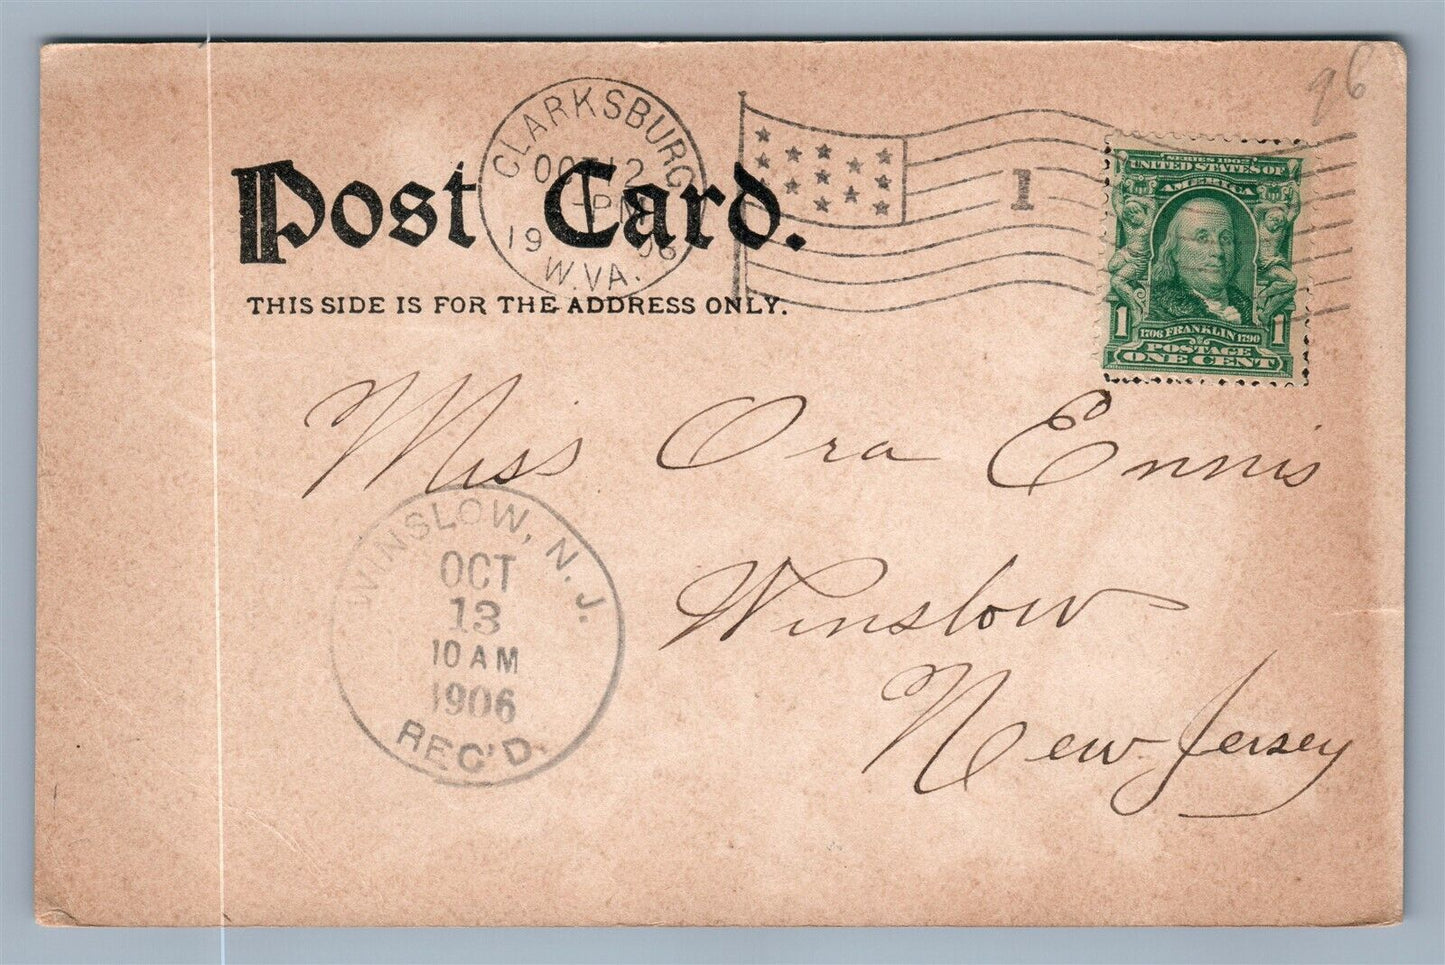 96
CLARKSBURG
OCT 12
PM
1906
W.VA.
1
SERIES 1902
UNITED STATES OF
AMERICA
1 1
1706 FRANKLIN 1790
POSTAGE
ONE CENT
Post Card.
THIS SIDE IS FOR THE ADDRESS ONLY.
Miss Ora Ennis
Winslow
New Jersey
WINSLOW, N. J.
OCT
13
10 AM
1906
REC'D.